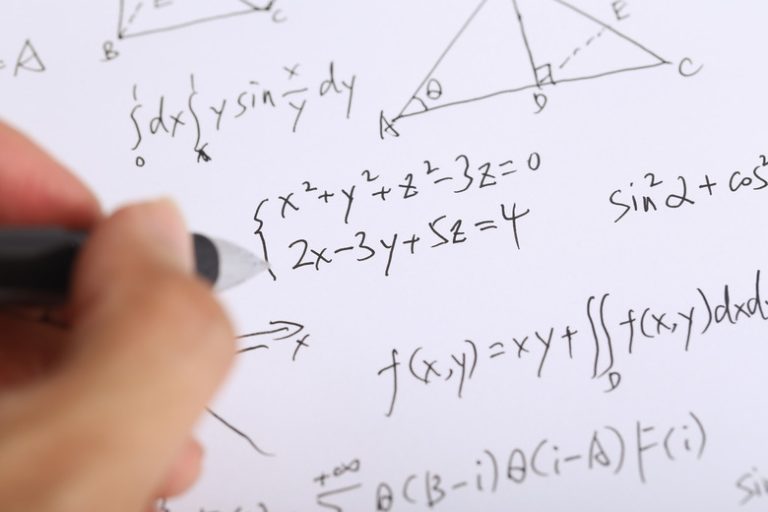 E
B
C
= A
E
C
D
A
θ
∫₀¹ dx ∫ₓ¹ y sin x/y dy
{ x² + y² + z² - 3z = 0
2x - 3y + 5z = 4
sin²α + cos²
x
f(x,y) = xy + ∬_D f(x,y) dxd
+∞ θ(B-i) θ(i-A) F(i)
si